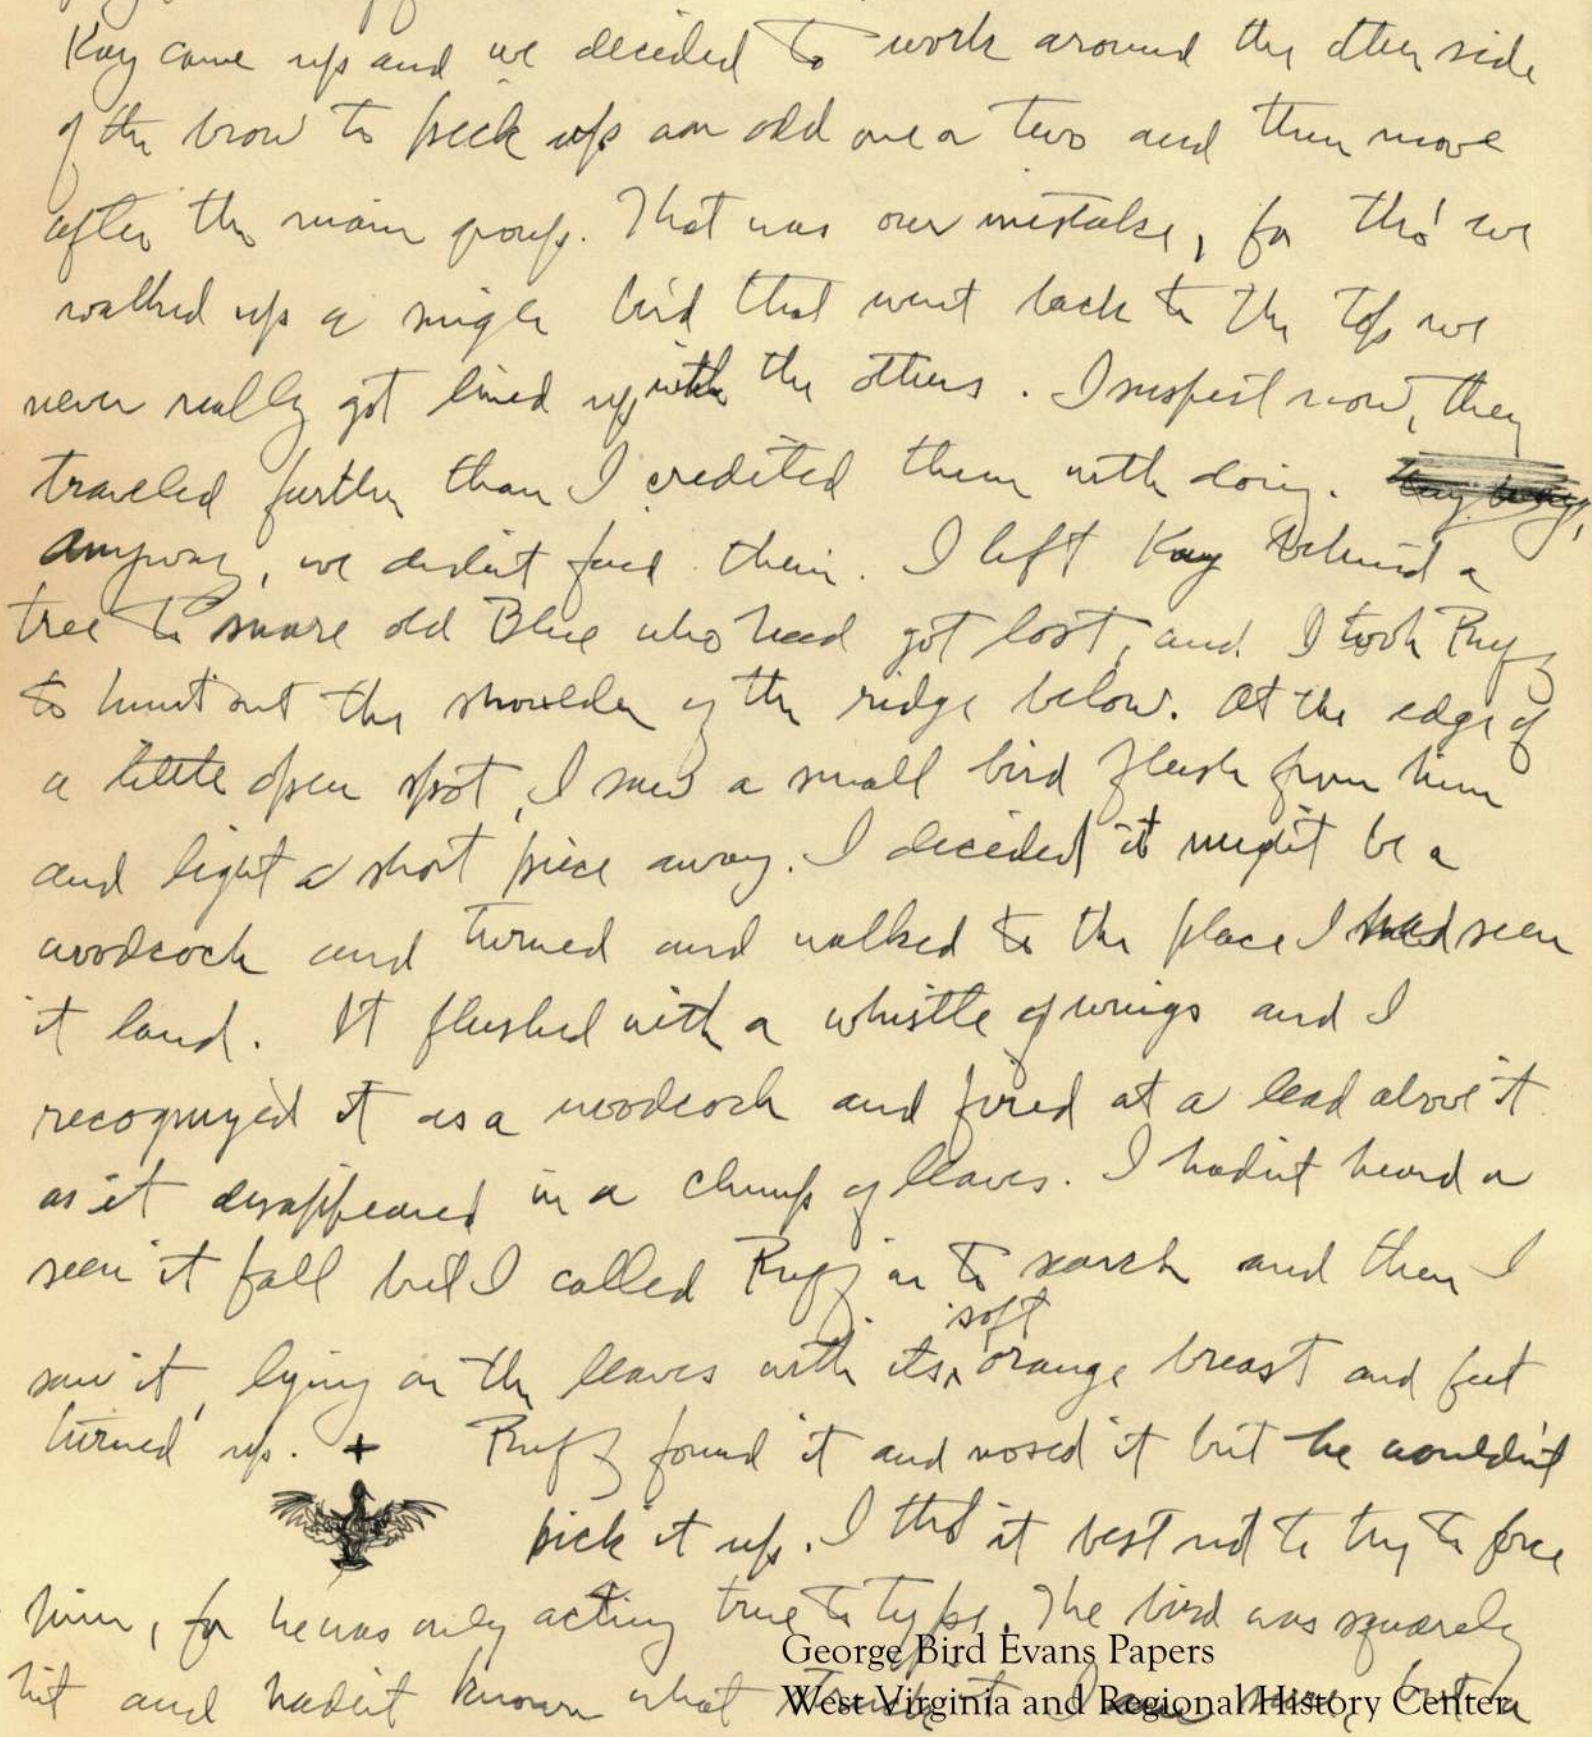 Kay came up and we decided to work around the other side
of the brow to pick up an odd one or two and then move
after the main group. That was our mistake, for tho' we
walked up a single bird that went back to the top we
never really got lined up with the others. I suspect now, they
traveled further than I credited them with doing.
Anyway, we didn't find them. I left Kay behind a
tree to snare old Blue who had got lost, and I took Ruff
to hunt out the shoulder of the ridge below. At the edge of
a little open spot, I saw a small bird flush from him
and light a short piece away. I decided it might be a
woodcock and turned and walked to the place I had seen
it land. It flushed with a whistle of wings and I
recognized it as a woodcock and fired at a lead above it
as it disappeared in a clump of leaves. I hadn't heard or
seen it fall but I called Ruff in to search and then I
saw it, lying on the leaves with its soft orange breast and feet
turned up. + Ruff found it and nosed it but he wouldn't
pick it up. I tho't it best not to try to force
him, for he was only acting true to type. The bird was squarely
hit and hadn't known what
George Bird Evans Papers
West Virginia and Regional History Center